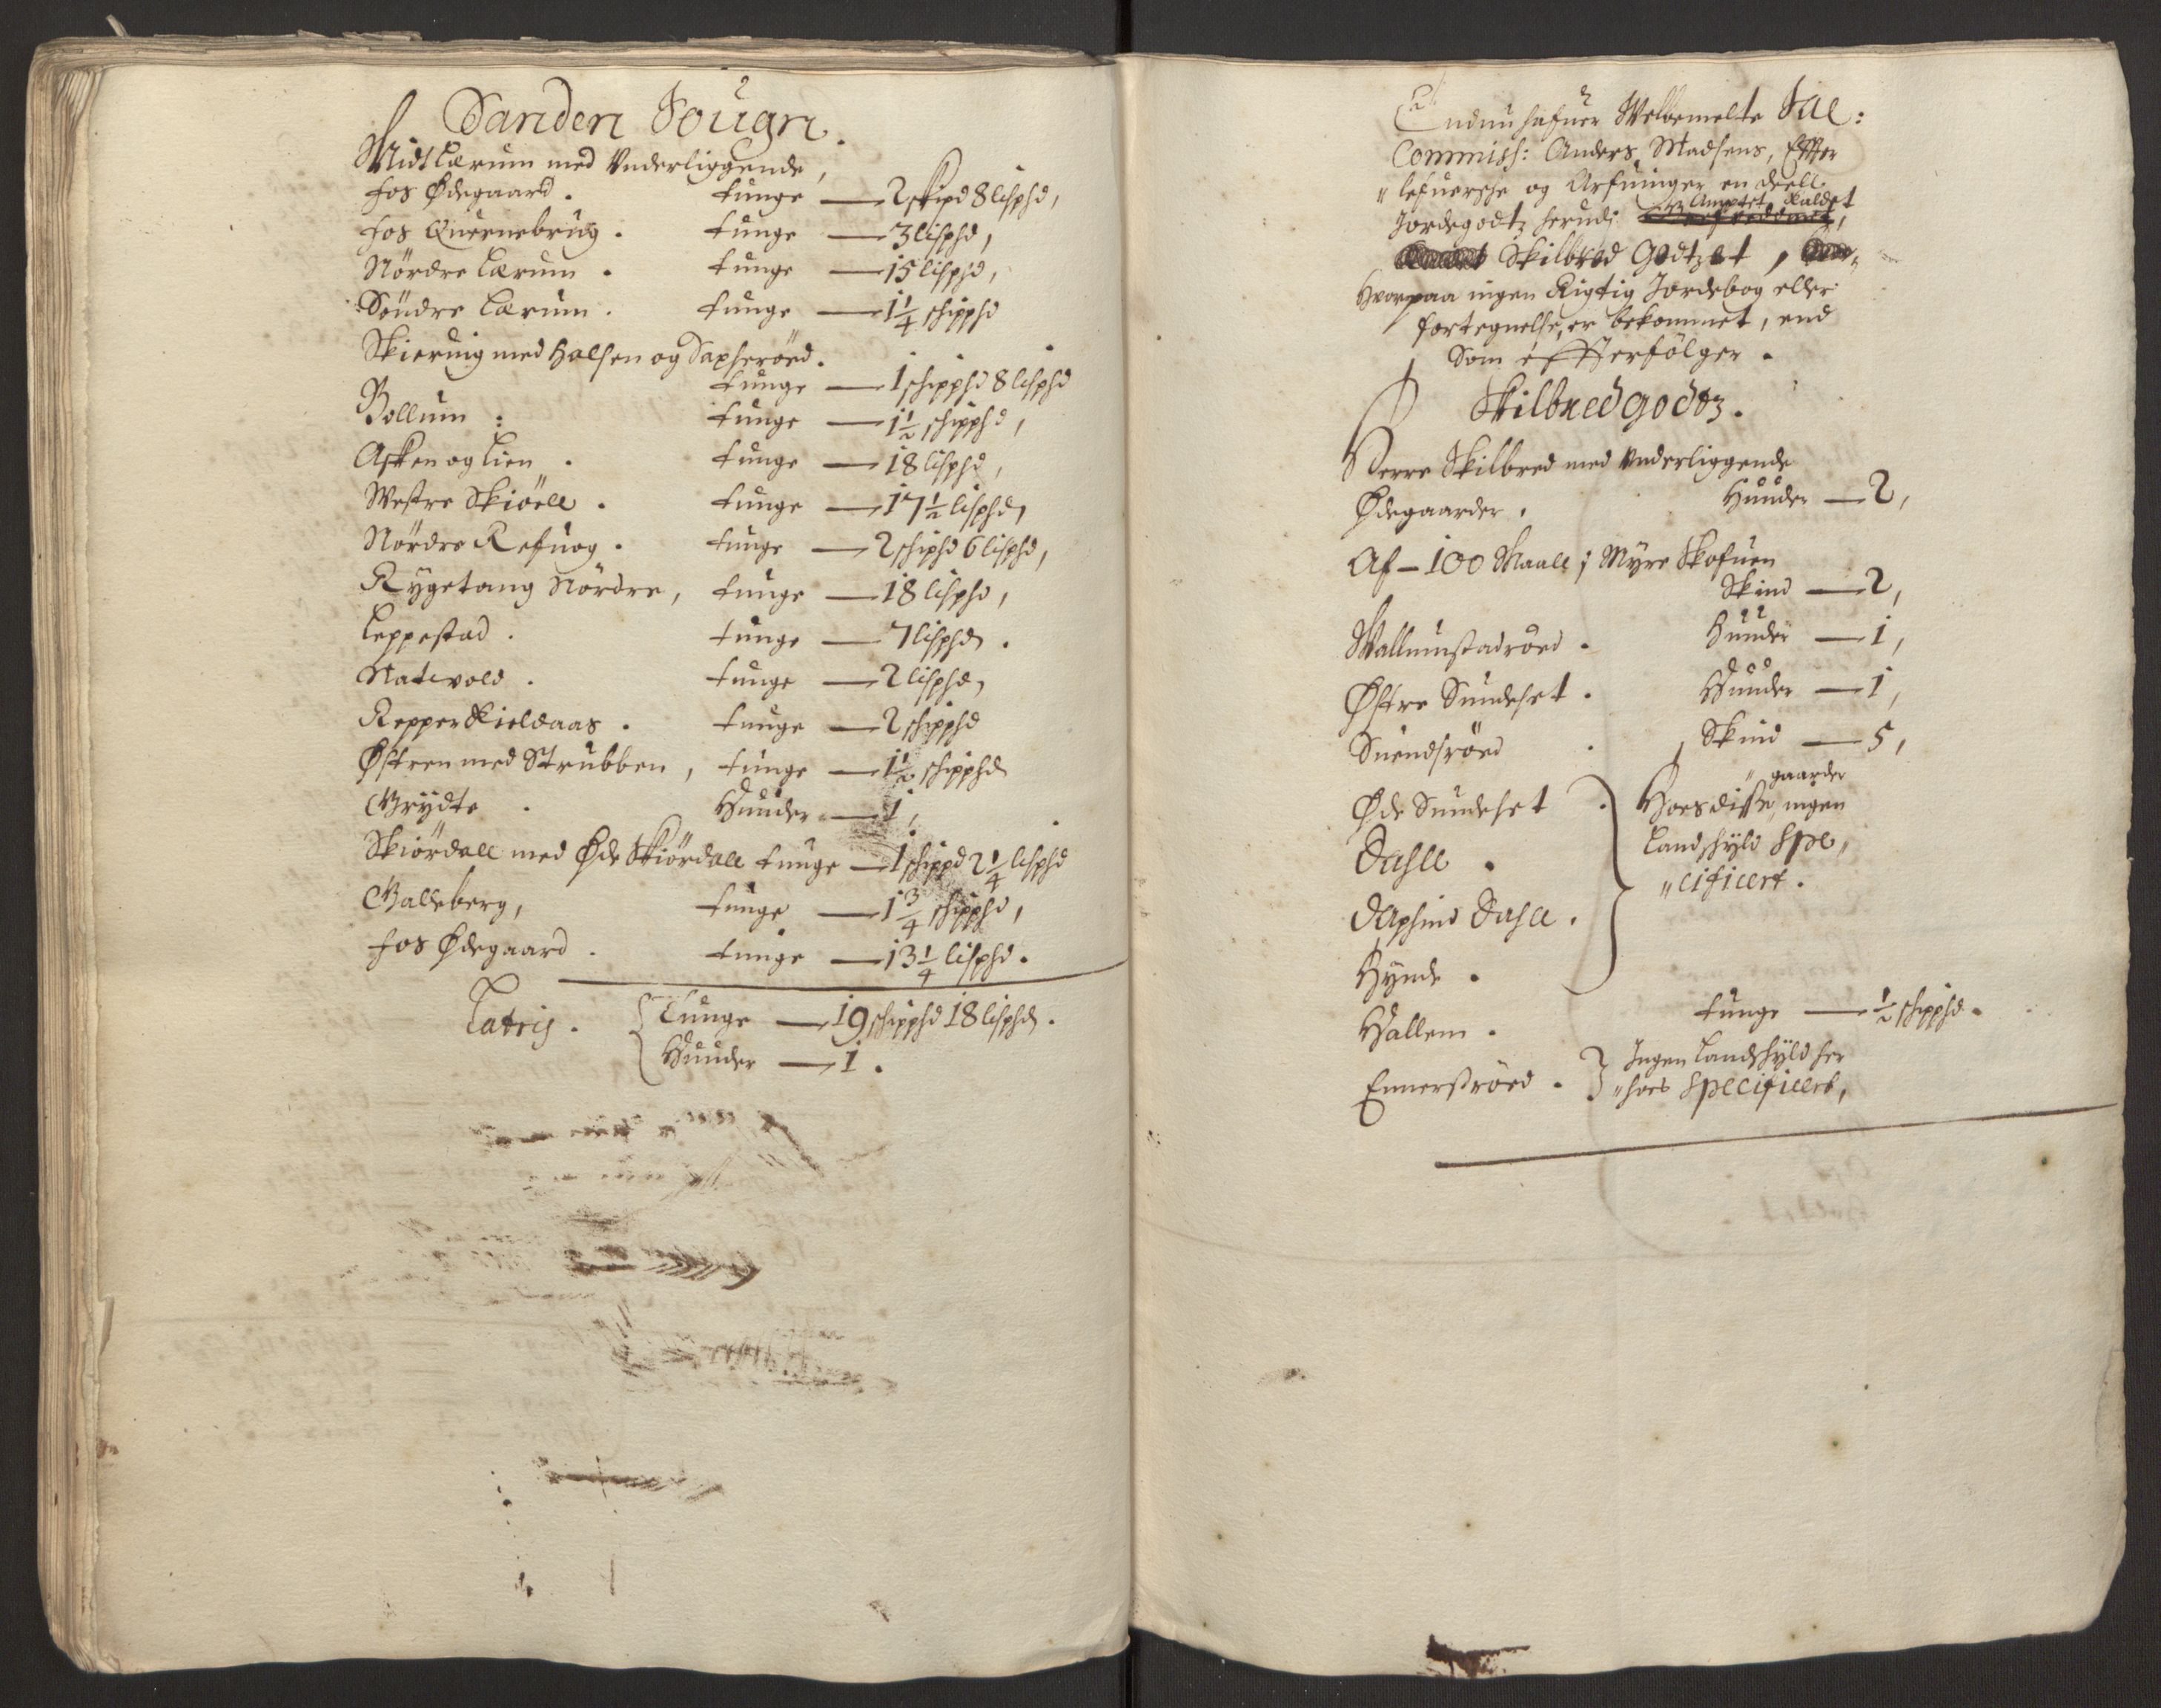 Sanden Sougn.
Midt Lærum med Underliggende,
fos Ødegaard. tunge — 2 skipd 8 lisphd,
fos Quernebrug. tunge — 3 lisphd,
Nördre Lærum. tunge — 15 lisphd,
Söndre Lærum. tunge — 1 1/4 schipphd
Skieruig med Halsen og Saxserörd.
tunge — 1 schipphd 8 lisphd
Bollum: tunge — 1 1/2 schipphd,
Asken og Lien. tunge — 18 lisphd,
Westre Skiöell. tunge — 17 1/2 lisphd,
Nördre Refuog. tunge — 2 schiphd 6 lisphd,
Rygetang Nördre, tunge — 18 lisphd,
Leppestad. tunge — 7 lisphd.
Natvold. tunge — 2 lisphd,
Repper Kieldaas. tunge — 2 schipphd
Østren med Strubben, tunge — 1 1/2 schipphd
Grydte. Huuder — 1,
Skiördall med Øde Skiördall tunge — 1 schippd 2 1/4 lisphd
Galleberg, tunge — 1 3/4 schipphd,
fos Ødegaard. tunge — 13 1/4 lisphd.
Latris. Tunge — 19 schipphd 18 lisphd.
Huuder — 1.
Endnu hafuer Welbemelte Sal:
Commiss: Anders Madsens, Effter
"lefuersche og Arfuinger en deell
Jordegodtz herudj Amptet, Kaldet
Skilbred Godtzet,
Hvorpaa ingen Rigtig Jordebog eller
fortegnelse, er bekommet, end
Som effterfölger.
Skilbred godtz.
Nerre Skilbred med Underliggende
Ødegaarder. Huuder — 2,
Af — 100 Maall j Myre Skofuen
Skind — 2,
Wallumstadröed. Huuder — 1,
Østre Sundset. Huuder — 1,
Suendsröed. Skind — 5,
Øde Sundeset. Hoes disse "gaarder ingen
Dahll. Landschyld Spe"
Dahll. "cificert.
Hynde.
Hallem. tunge — 1/2 schipphd.
Ennerströed. Ingen Landschyld her
"hoes Specificert,